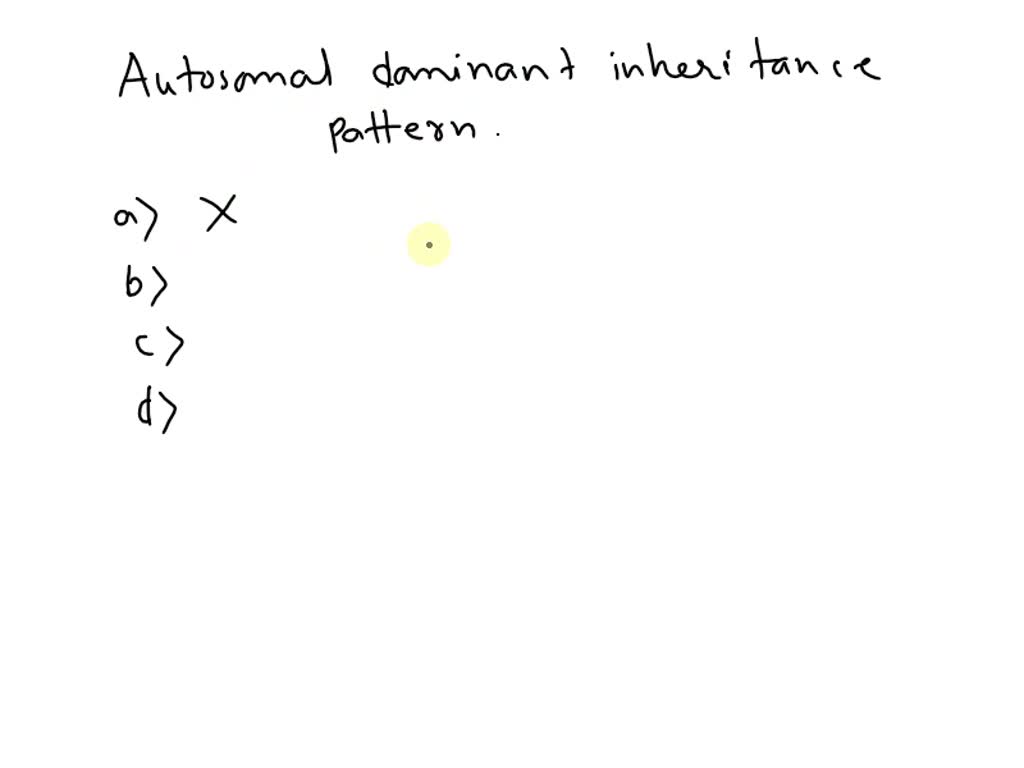 Autosomal dominant inheritance
pattern.
a> X
b>
c>
d>